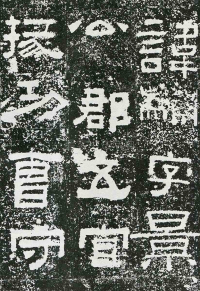 諱字景
公郡五官
掾功曹守